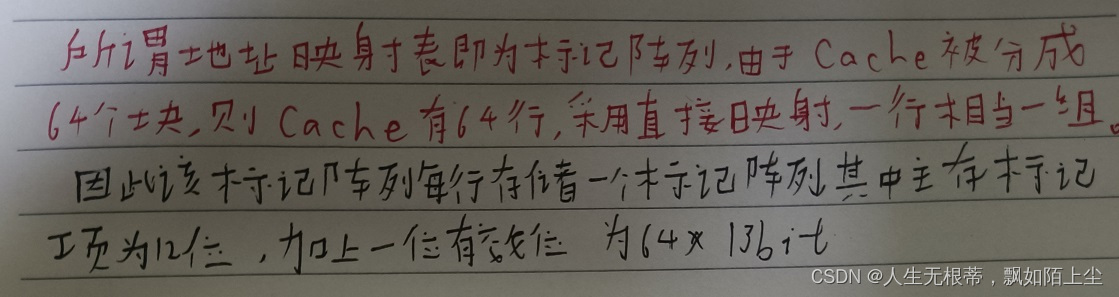 所谓地址映射表即为标记阵列,由于Cache被分成
64个块,则Cache有64行,采用直接映射,一行相当一组。
因此该标记阵列每行存储着一个标记阵列其中主存标记
项为12位,加上一位有效位 为64×13bit
CSDN @人生无根蒂,飘如陌上尘